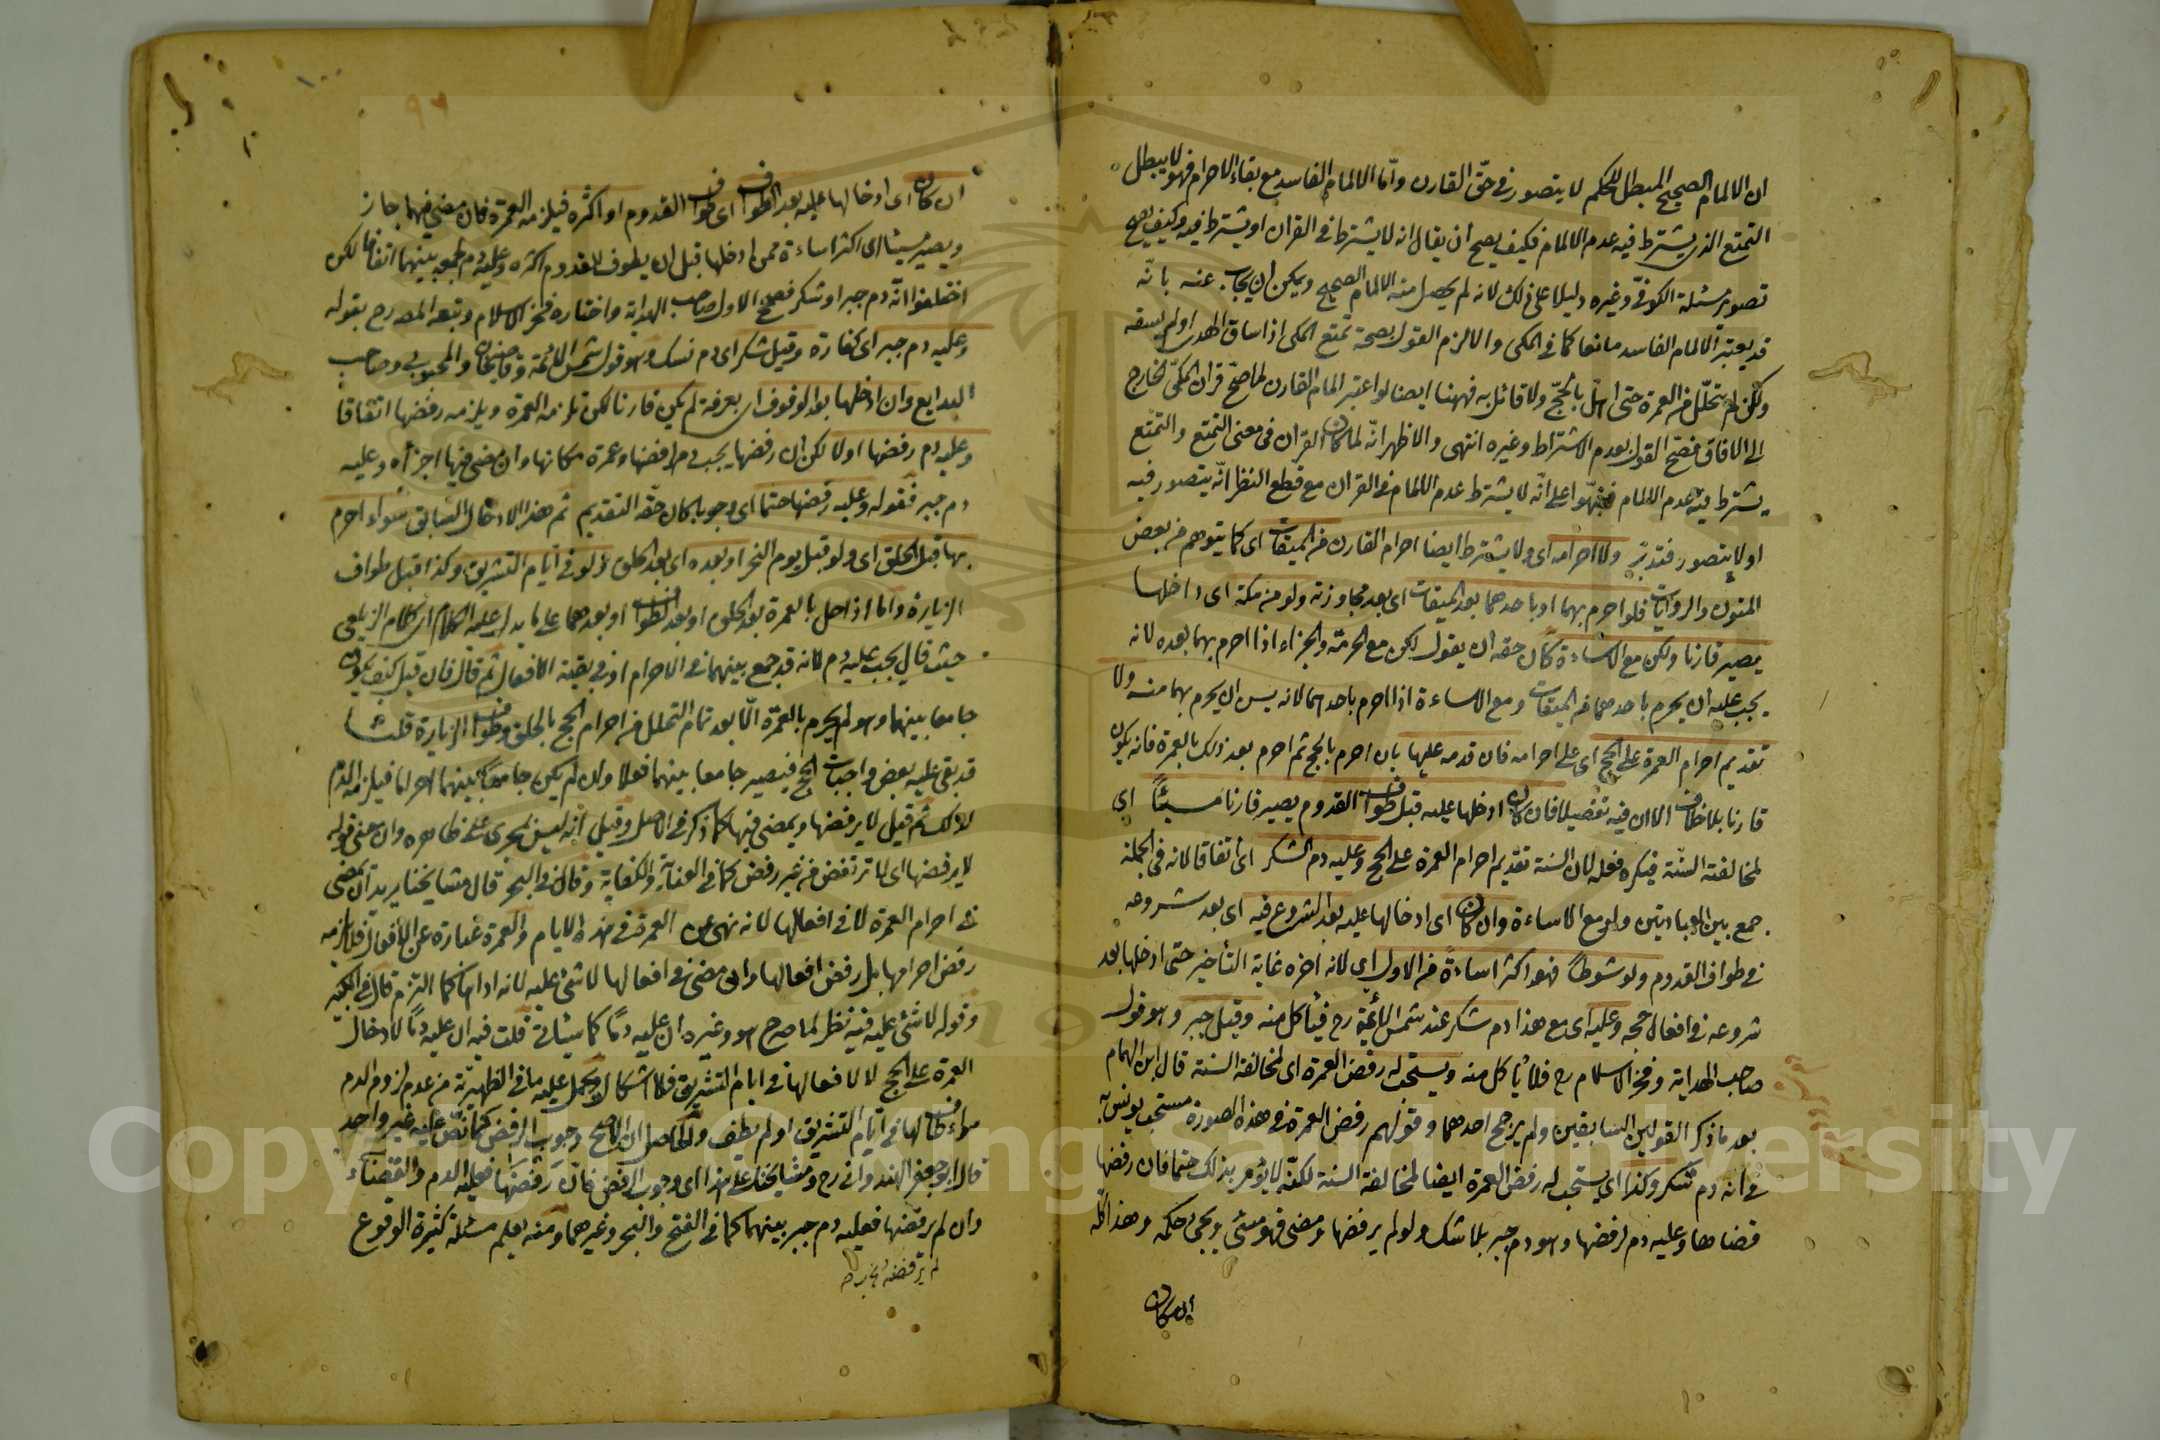 ان الالمام الصحيح المبطل للحكم لا يتصور في حق القارن واما الالمام الفاسد مع بقاء الاحرام فهو لا يبطل
التمتع الذي يشترط فيه عدم الالمام فكيف يصح ان يقال انه لا يشترط في القران او يشترط فيه وكيف يصح
تصوير مسئلة الكوفي وغيره دليلا على ذلك لانه لم يحصل منه الالمام الصحيح ويمكن ان يجاب عنه بانه
قد يعتبر الالمام الفاسد مانعا كما في المكي والا لزم القول بصحة تمتع المكي اذا ساق الهدي او لم يسقه
ولكن لم يتحلل من العمرة حتى اهل بالحج ولا قائل به فههنا ايضا لو اعتبر المام القارن لما صح قران المكي الخارج
الى الافاق فصح القول بعدم الاشتراط وغيره انتهى والاظهر انه لما كان القران في معنى التمتع والتمتع
يشترط فيه عدم الالمام فنبهوا على انه لا يشترط عدم الالمام في القران مع قطع النظر انه يتصور فيه
او لا يتصور فتدبر ولا احرامه اي ولا يشترط ايضا احرام القارن من الميقات اي كما يتوهم من بعض
المتون والروايات فلو احرم بهما او باحدهما بعد الميقات اي بعد مجاوزته ولو من مكة اي داخلها
يصير قارنا ولكن مع الاساءة كان حقه ان يقول لكن مع الحرمة والجزاء اذا احرم بهما بعده لانه
يجب عليه ان يحرم باحدهما من الميقات ومع الاساءة اذا احرم باحدهما لانه يسن ان يحرم بهما منه ولا
تقديم احرام العمرة على الحج اي على احرامه فان قدمه عليها بان احرم بالحج ثم احرم بعد ذلك بالعمرة فانه يكون
قارنا بلا خلاف الا ان فيه تفصيلا فان كان ادخلها عليه قبل طواف القدوم يصير قارنا مسيئا اي
لمخالفته السنة فيكره فعله لان السنة تقديم احرام العمرة على الحج وعليه دم الشكر اي اتفاقا لانه في الجملة
جمع بين العبادتين ولو مع الاساءة وان كان اي ادخالها عليه بعد الشروع فيه اي بعد شروعه
في طواف القدوم ولو شوطا فهو اكثر اساءة من الاول اي لانه اخره غاية التأخير حتى ادخلها بعد
شروعه في افعال حجه وعليه اي مع هذا دم شكر عند شمس الائمة رح فيأكل منه وقيل جبر وهو قول
صاحب الهداية وفخر الاسلام رح فلا يأكل منه ويستحب له رفض العمرة اي لمخالفة السنة قال ابن الهمام
بعد ما ذكر القولين السابقين ولم يرجح احدهما وقولهم رفض العمرة في هذه الصورة مستحب يونس به
في انه دم شكر وكذا اي يستحب له رفض العمرة ايضا لمخالفة السنة لكنه لا يؤمر بذلك حتما فان رفضها
قضاها وعليه دم لرفضها وهو دم جبر بلا شك ولو لم يرفضها ومضى فهو مسئ ويجئ حكمه وهذا كله
ان كان
ان كان اي ادخالها عليه بعد الطواف اي طواف القدوم او اكثره فيلزمه العمرة فان مضى فيهما جاز
ويصير مسيئا اي اكثر اساءة ممن ادخلها قبل ان يطوف للقدوم اكثره وعليه دم لجمعه بينهما اتفاقا لكن
اختلفوا انه دم جبر او شكر فصحح الاول صاحب الهداية واختاره فخر الاسلام وتبعه المص رح بقوله
وعليه دم جبر اي كفارة وقيل شكر اي دم نسك وهو قول شمس الائمة وقاضيخان والمحبوبي وصاحب
البدايع وان ادخلها بعد الوقوف اي بعرفة لم يكن قارنا لكن تلزمه العمرة ويلزمه رفضها اتفاقا
وعليه دم رفضها او لا لكن ان رفضها يجب دم لرفضها وعمرة مكانها وان مضى فيها اجزأه وعليه
دم جبر فقوله وعليه رفضها حتما اي وجوبا كان حقه التقديم ثم هذا الادخال السابق سواء احرم
بها قبل الحلق اي ولو قبل يوم النحر او بعده اي بعد الحلق ولو في ايام التشريق وكذا قبل طواف
الزيارة واما اذا اهل بالعمرة بعد الحلق او بعد الطواف او بعدهما على ما يدل عليه الكلام اي كلام الزيلعي
حيث قال يجب عليه دم لانه قد جمع بينهما في الاحرام او في بقية الافعال ثم قال فان قيل كيف يكون
جامعا بينهما وهو لم يحرم بالعمرة الا بعد تمام التحلل من احرام الحج بالحلق وطواف الزيارة قلنا
قد بقي عليه بعض واجبات الحج فيصير جامعا بينهما فعلا وان لم يكن جامعا بينهما احراما فيلزمه الدم
لذلك ثم قيل لا يرفضها ويمضي فيها كما ذكر في الاصل وقيل انه ليس يجري على ظاهره وان معنى قوله
لا يرفضها اي لا ترتفض من غير رفض كما في العناية والكفاية وقال في البحر قال مشايخنا يريد ان يمضي
في احرام العمرة لا في افعالها لانه نهي عن العمرة في هذه الايام والعمرة عبارة عن الافعال فلا يلزمه
رفض احرامها بل رفض افعالها وان مضى في افعالها لا شئ عليه لانه اداها كما التزم قال في الكبير
وقوله لا شئ عليه فيه نظر لما صرح هو وغيره ان عليه دما كما سيأتي قلت فيه ان عليه دما لادخال
العمرة على الحج لا لافعالها في ايام التشريق فلا اشكال ويحمل عليه ما في الظهيرية من عدم لزوم الدم
سواء طاف لها في ايام التشريق او لم يطف والحاصل ان الاصح وجوب الرفض كما نص عليه غير واحد
قال ابو جعفر الهندواني رح ومشايخنا على هذا اي وجوب الرفض فان رفضها فعليه الدم والقضاء
وان لم يرفضها فعليه دم جبر بينهما كما في الفتح والبحر وغيرهما ومنه يعلم مسئلة كثيرة الوقوع
Copyright © King Saud University